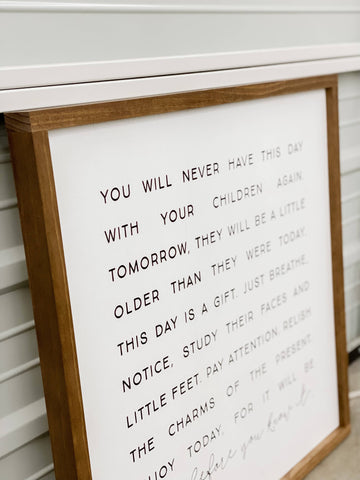 YOU WILL NEVER HAVE THIS DAY
WITH YOUR CHILDREN AGAIN.
TOMORROW, THEY WILL BE A LITTLE
OLDER THAN THEY WERE TODAY.
THIS DAY IS A GIFT. JUST BREATHE,
NOTICE, STUDY THEIR FACES AND
LITTLE FEET. PAY ATTENTION. RELISH
THE CHARMS OF THE PRESENT.
NJOY TODAY, FOR IT WILL BE
before you know it